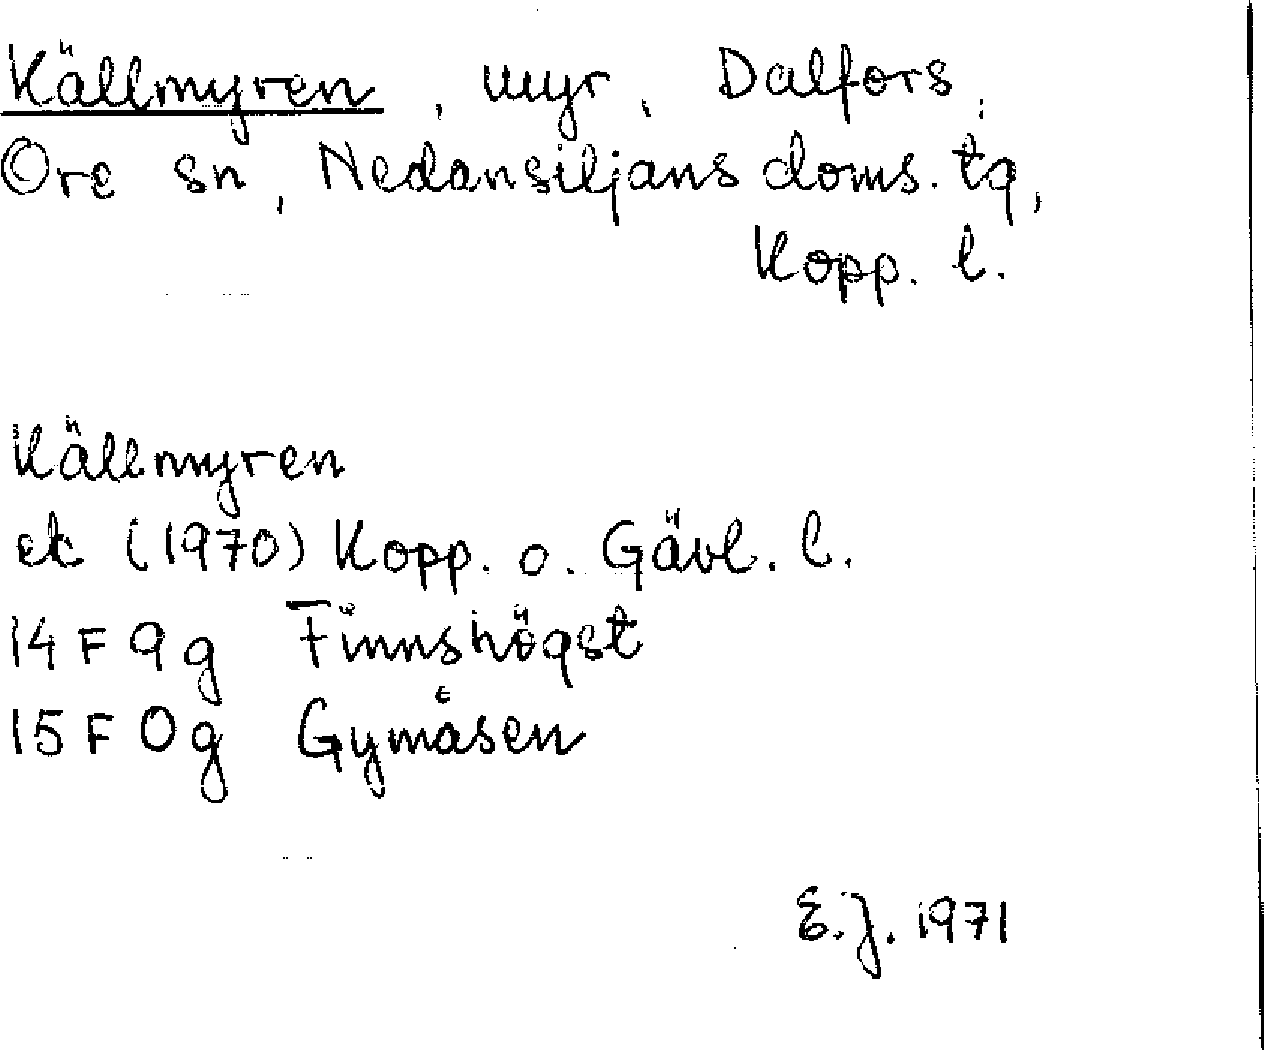 Källmyren, myr, Dalfors,
Ore sn, Nedansiljans doms. tg,
Kopp. l.
Källmyren
ek (1970) Kopp. o. Gävl. l.
14 F 9 g Finnshögst
15 F 0 g Gymåsen
E.J. 1971